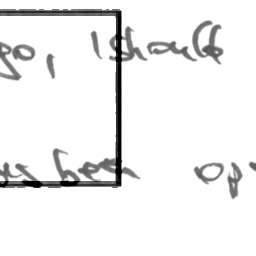 go, I should
been op